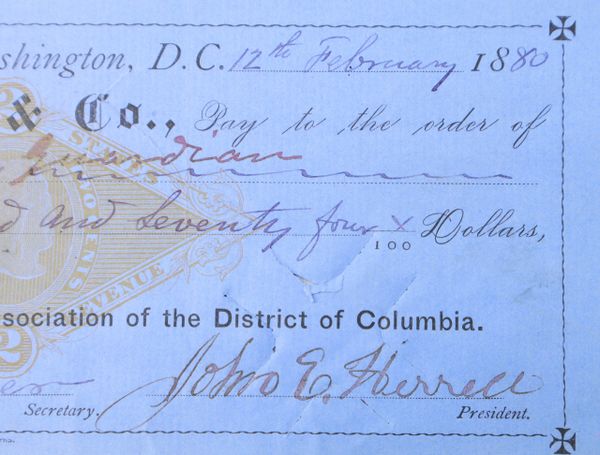 shington, D.C. 12th February 1880
& Co., Pay to the order of
Guardian
d and Seventy four x/100 Dollars,
2
STATES
TWO CENTS
REVENUE
2
ssociation of the District of Columbia.
John E. Herrell
Secretary. President.